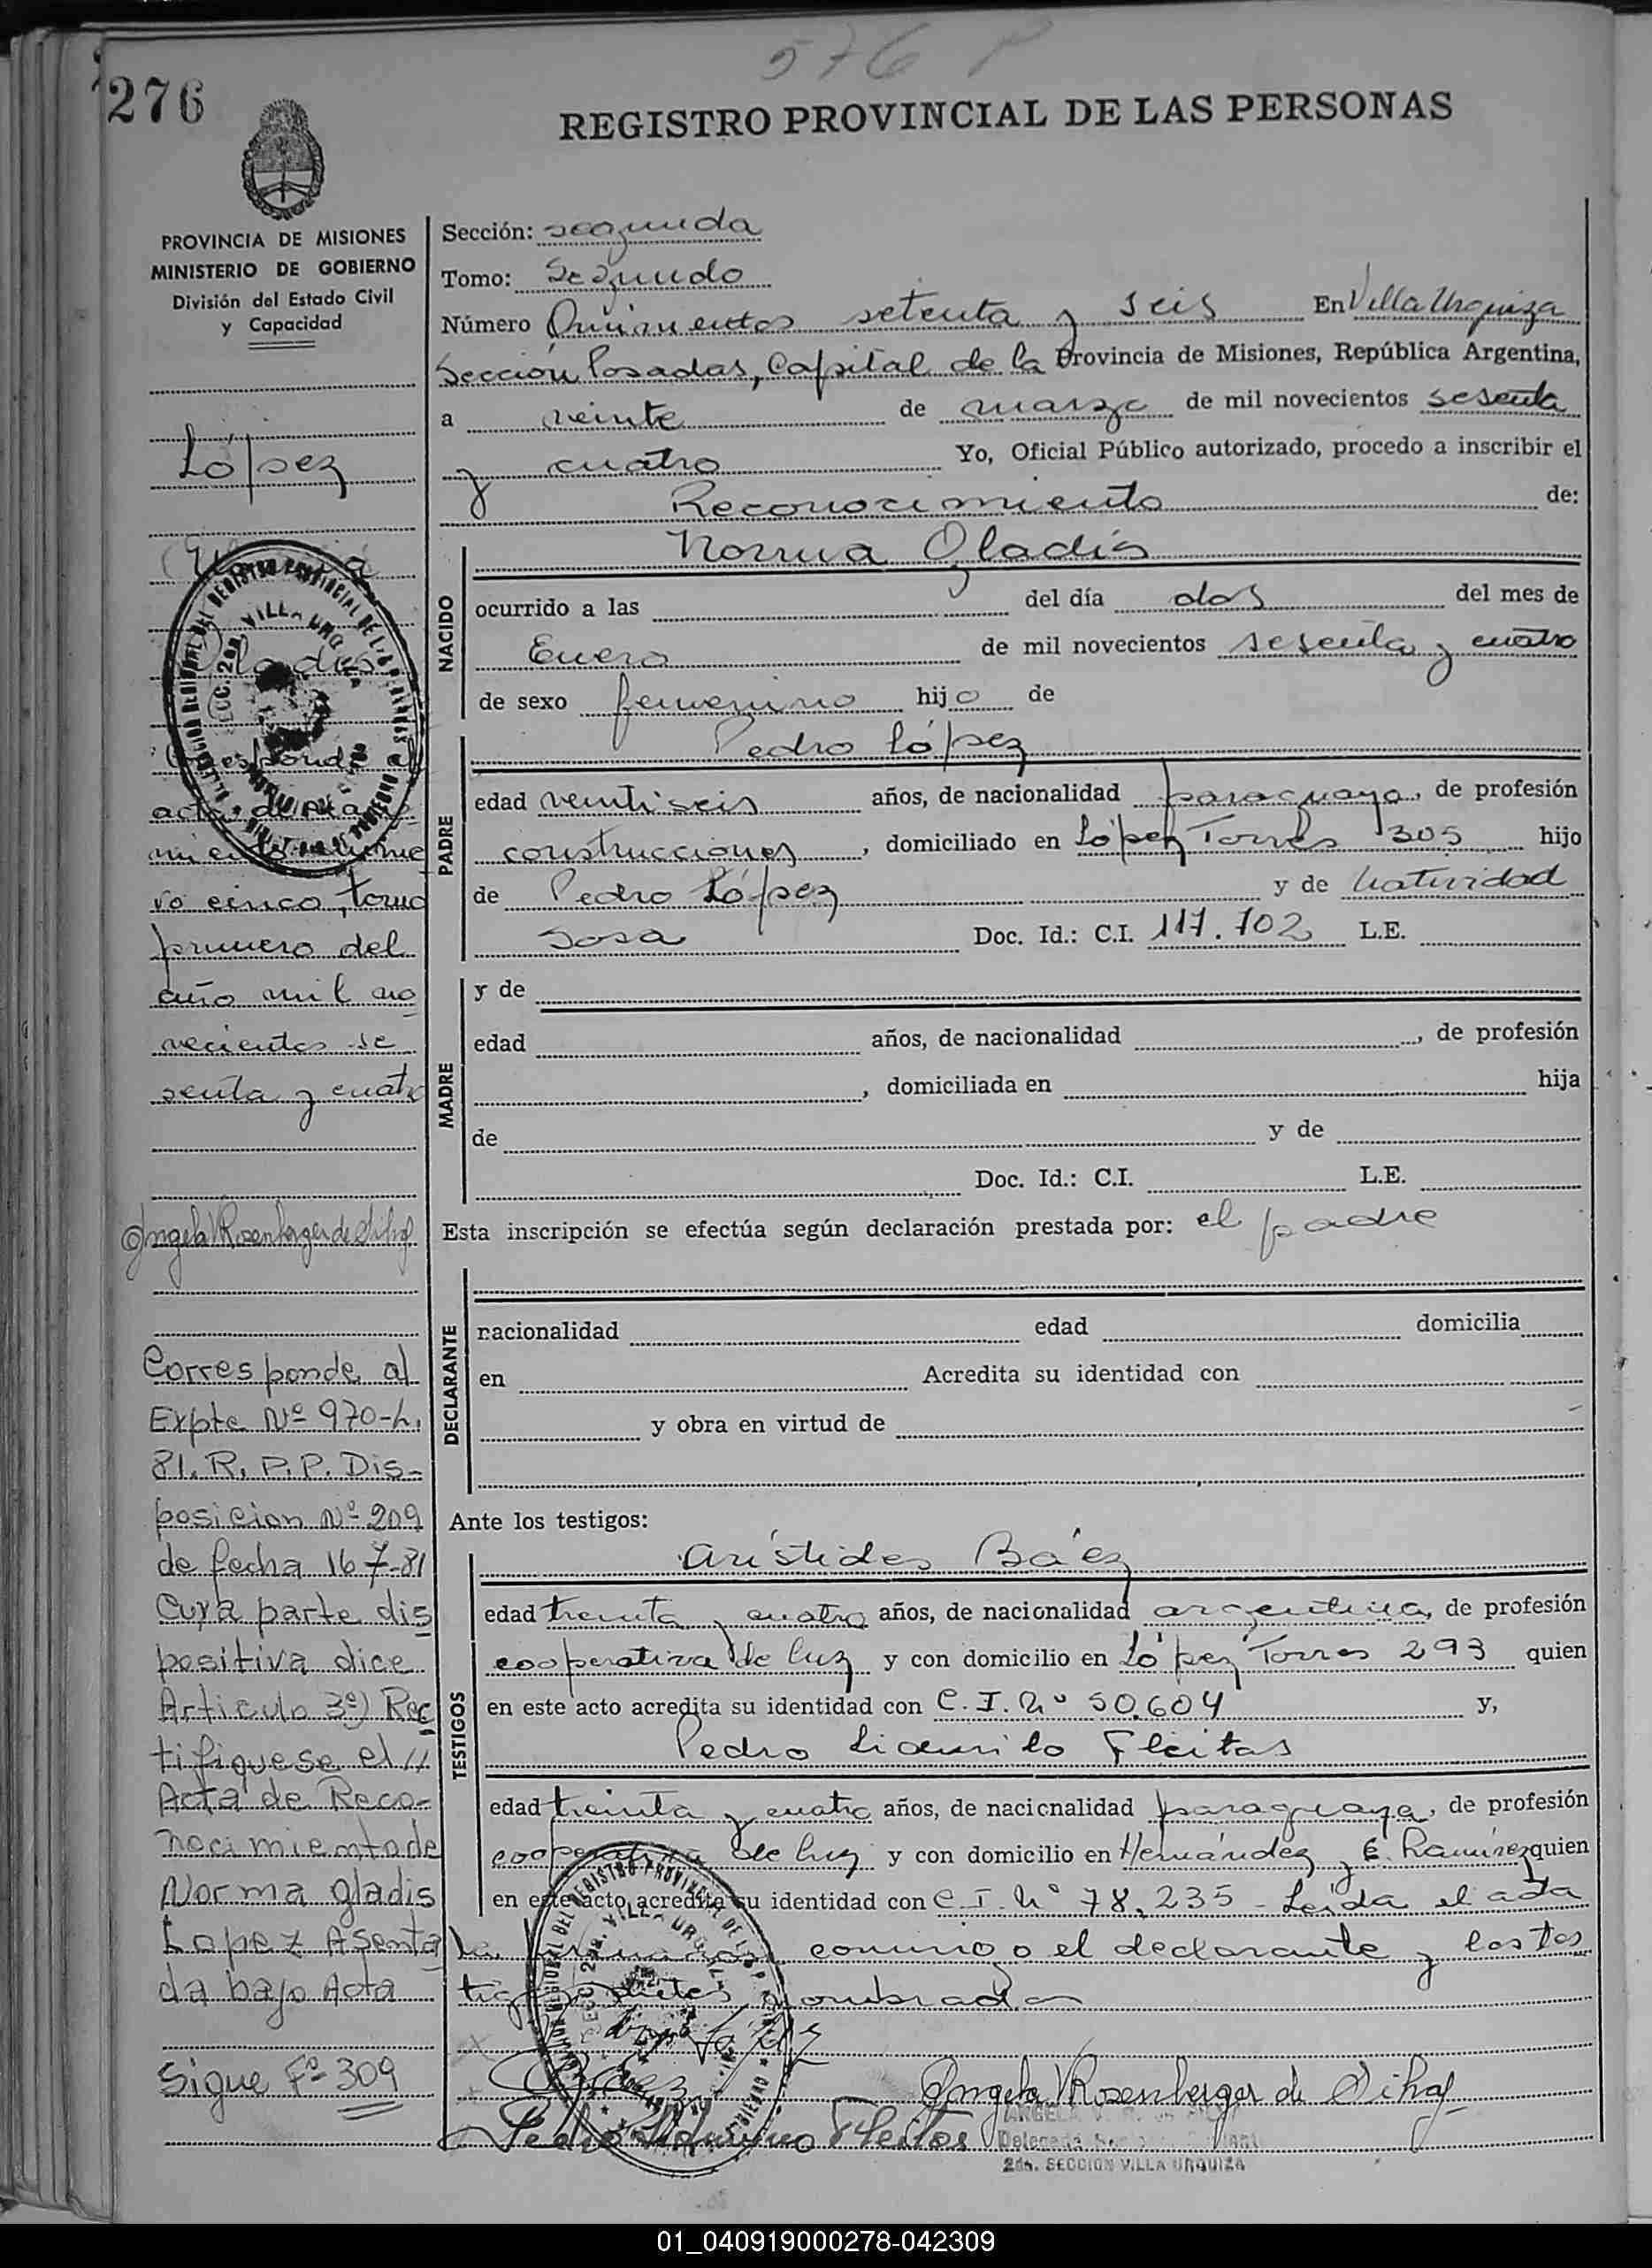 576
276
REGISTRO PROVINCIAL DE LAS PERSONAS
PROVINCIA DE MISIONES
MINISTERIO DE GOBIERNO
División del Estado Civil
y Capacidad
López
Gladis
Corresponde al
acta de naci
miento núme
ro cinco, tomo
primero del
año mil no
vecientos se
senta y cuatro
Angela V Rosenberger de
Corresponde al
Expte Nº 970-L.
81. R. P. P. Dis-
posicion Nº 209
de fecha 16-7-81
Cuya parte dis
positiva dice
Articulo 3º) Rec
tifiquese el //
Acta de Reco-
nocimiento de
Norma gladis
Lopez Asenta
da bajo Acta
Sigue Fº 309
Sección: segunda
Tomo: Segundo
Número Quinientos setenta y seis En Villa Urquiza
Sección Posadas, Capital de la Provincia de Misiones, República Argentina,
a veinte de marzo de mil novecientos sesenta
y cuatro Yo, Oficial Público autorizado, procedo a inscribir el
Reconocimiento de:
NACIDO
Norma Gladis
ocurrido a las del día dos del mes de
Enero de mil novecientos sesenta y cuatro
de sexo femenino hijo de
PADRE
Pedro López
edad veintiseis años, de nacionalidad paraguaya, de profesión
construcciones, domiciliado en López Torres 305 hijo
de Pedro López y de Natividad
Sosa Doc. Id.: C.I. 117.102 L.E.
MADRE
y de
edad años, de nacionalidad , de profesión
, domiciliada en hija
de y de
Doc. Id.: C.I. L.E.
Esta inscripción se efectúa según declaración prestada por: el padre
DECLARANTE
nacionalidad edad domicilia
en Acredita su identidad con
y obra en virtud de
Ante los testigos:
TESTIGOS
Arístides Báez
edad treinta y cuatro años, de nacionalidad argentina, de profesión
cooperativa de luz y con domicilio en López Torres 293 quien
en este acto acredita su identidad con C.I. Nº 50.604 y,
Pedro Fleitas
edad treinta y cuatro años, de nacionalidad paraguaya, de profesión
cooperativa de luz y con domicilio en Hernández y E. Ramírez quien
en este acto acredita su identidad con C.I. Nº 78.235 - Leída el acta
la conmigo el declarante y los tes
tigos antes nombrados
Báez
Angela V Rosenberger de
Pedro Fleitas
2da. SECCION VILLA URQUIZA
01_040919000278-042309